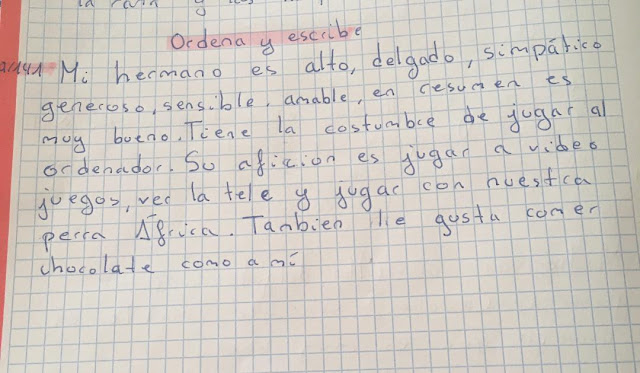 la       y
Ordena y escribe
2/141 Mi hermano es alto, delgado, simpático
generoso, sensible, amable, en resumen es
muy bueno. Tiene la costumbre de jugar al
ordenador. Su aficion es jugar a video
juegos, ver la tele y jugar con nuestra
perra África. Tanbien le gusta comer
chocolate como a mí